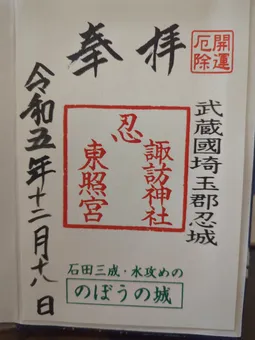 開運
厄除
奉拝
武蔵國埼玉郡忍城
忍
諏訪神社
東照宮
令和五年十二月十八日
石田三成・水攻めの
のぼうの城